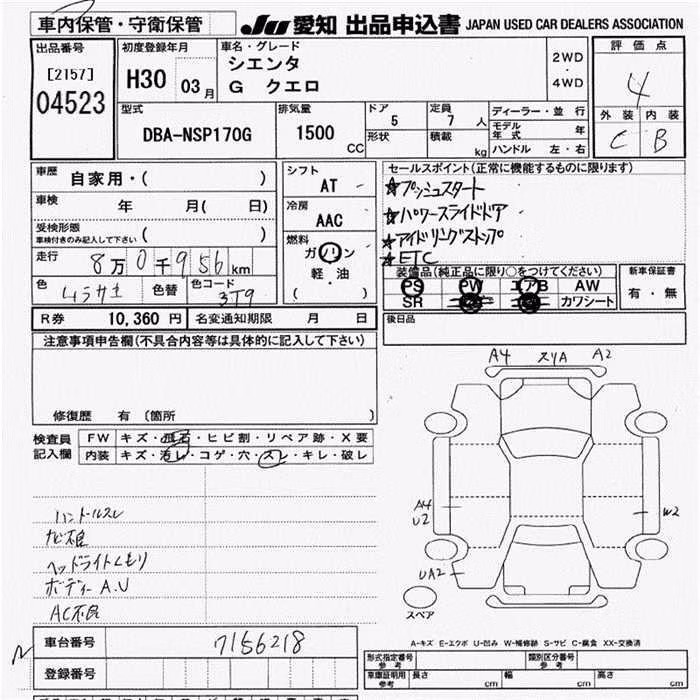 車内保管・守衛保管
JU 愛知 出品申込書 JAPAN USED CAR DEALERS ASSOCIATION
出品番号
[2157]
04523
初度登録年月
H30 03月
車名・グレード
シエンタ
G クエロ
2WD
・
4WD
評価点
4
外装 内装
C B
型式
DBA-NSP170G
排気量
1500 CC
ドア 5
形状
定員 7 人
積載 kg
ディーラー・並行
モデル年式 年
ハンドル 左・右
車歴 自家用・( )
車検 年 月( 日)
受検形態
車検付きのみ記入して下さい ( )
走行 8万0千956km
色 ムラサキ 色替 色コード 3T9
シフト
AT
冷房
AAC
燃料
ガソリン
軽・油
( )
セールスポイント(正常に機能するものに限ります)
☆プッシュスタート
☆パワースライドドア
☆アイドリングストップ
☆ETC
装備品(純正品に限り○をつけてください)
PS PW エアB AW
SR カワシート
新車保証書
有・無
後日品
R券 10,360円 名変通知期限 月 日
注意事項申告欄(不具合内容等は具体的に記入して下さい)
修復歴 有 〔箇所 〕
検査員
記入欄
FW キズ・飛石・ヒビ割・リペア跡・X要
内装 キズ・汚レ・コゲ・穴・スレ・キレ・破レ
ハンドルスレ
ナビ不良
ヘッドライトくもり
ボディーA.U
AC不良
A4 スリA A2
A4
U2
W2
UA2
スペア
A-キズ E-エクボ U-凹み W-補修跡 S-サビ C-腐食 XX-交換済
車台番号 7156218
登録番号
形式指定番号
参考
類別区分番号
参考
車庫証明用
参考
長さ cm 幅 cm 高さ cm